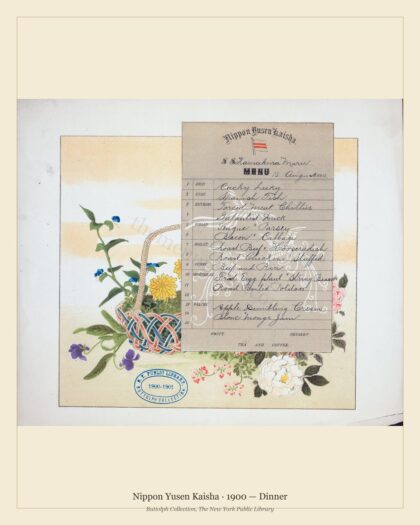 Nippon Yusen Kaisha
S.S. Kamakura Maru
MENU 13 August
1 SOUP Cucky Lucky
2 FISH Spanish Fish
3 ENTREES Forced meat Chollies
4 Duck
5 Tongue " Parsey
6 Bacon " Cabbage
7 Roast Beef " Horseradish
8 Roast Chickens Stuffed
9 CURRY Beef and Rice
10 Egg Plant String Beans
11 Potatoes
12
13 Apple Dumpling Cream
14 Blanc Monge Jam
FRUIT DESSERT
TEA AND COFFEE
N.Y. PUBLIC LIBRARY
1900-1901
BUTTOLPH COLLECTION
Nippon Yusen Kaisha · 1900 — Dinner
Buttolph Collection, The New York Public Library